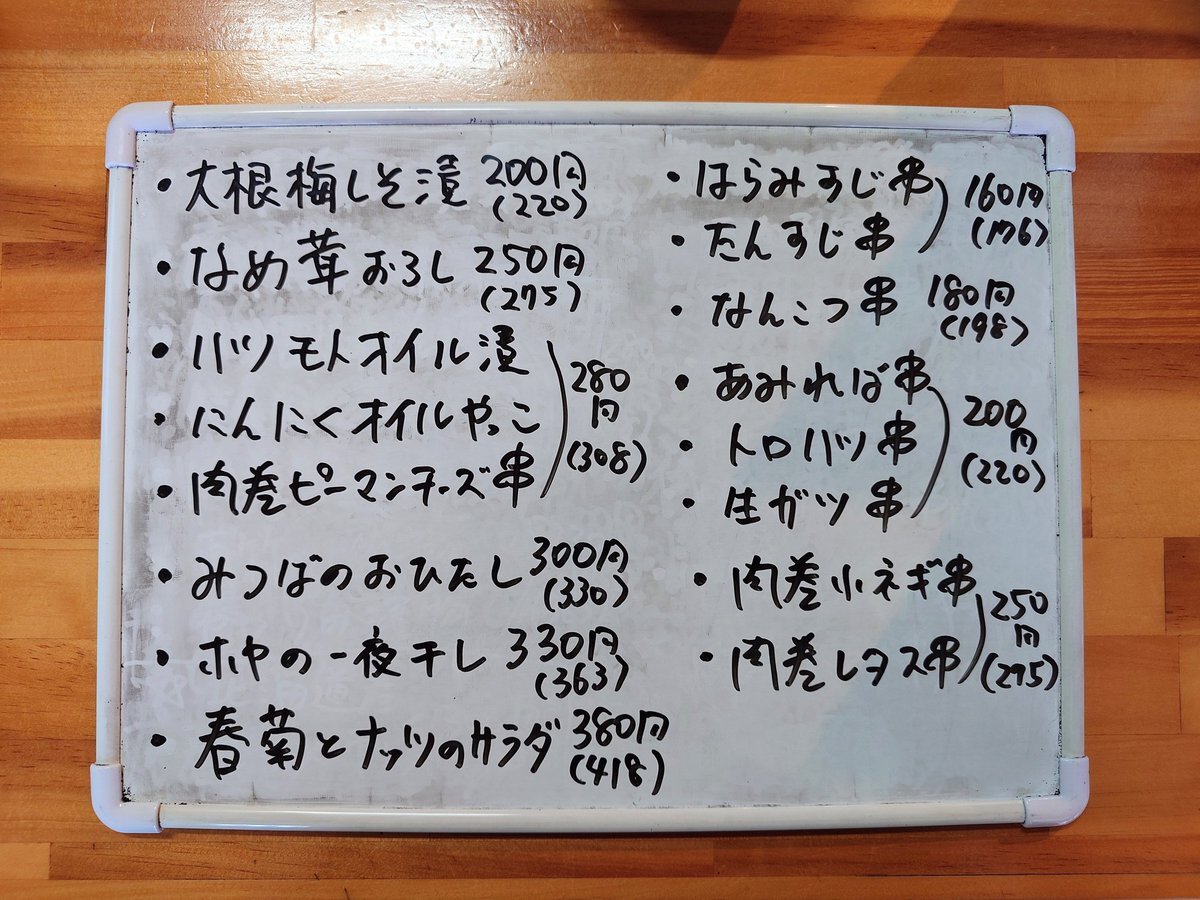 ・大根梅しそ漬 200円
(220)
・なめ茸おろし 250円
(275)
・ハツモトオイル漬
・にんにくオイルやっこ
・肉巻ピーマンチーズ串
280
円
(308)
・みつばのおひたし 300円
(330)
・ホヤの一夜干し 330円
(363)
・春菊とナッツのサラダ 380円
(418)
・はらみすじ串
・たんすじ串
160円
(176)
・なんこつ串 180円
(198)
・あみればー串
・トロハツ串
・生ガツ串
200
円
(220)
・肉巻小ネギ串
・肉巻レタス串
250
円
(295)